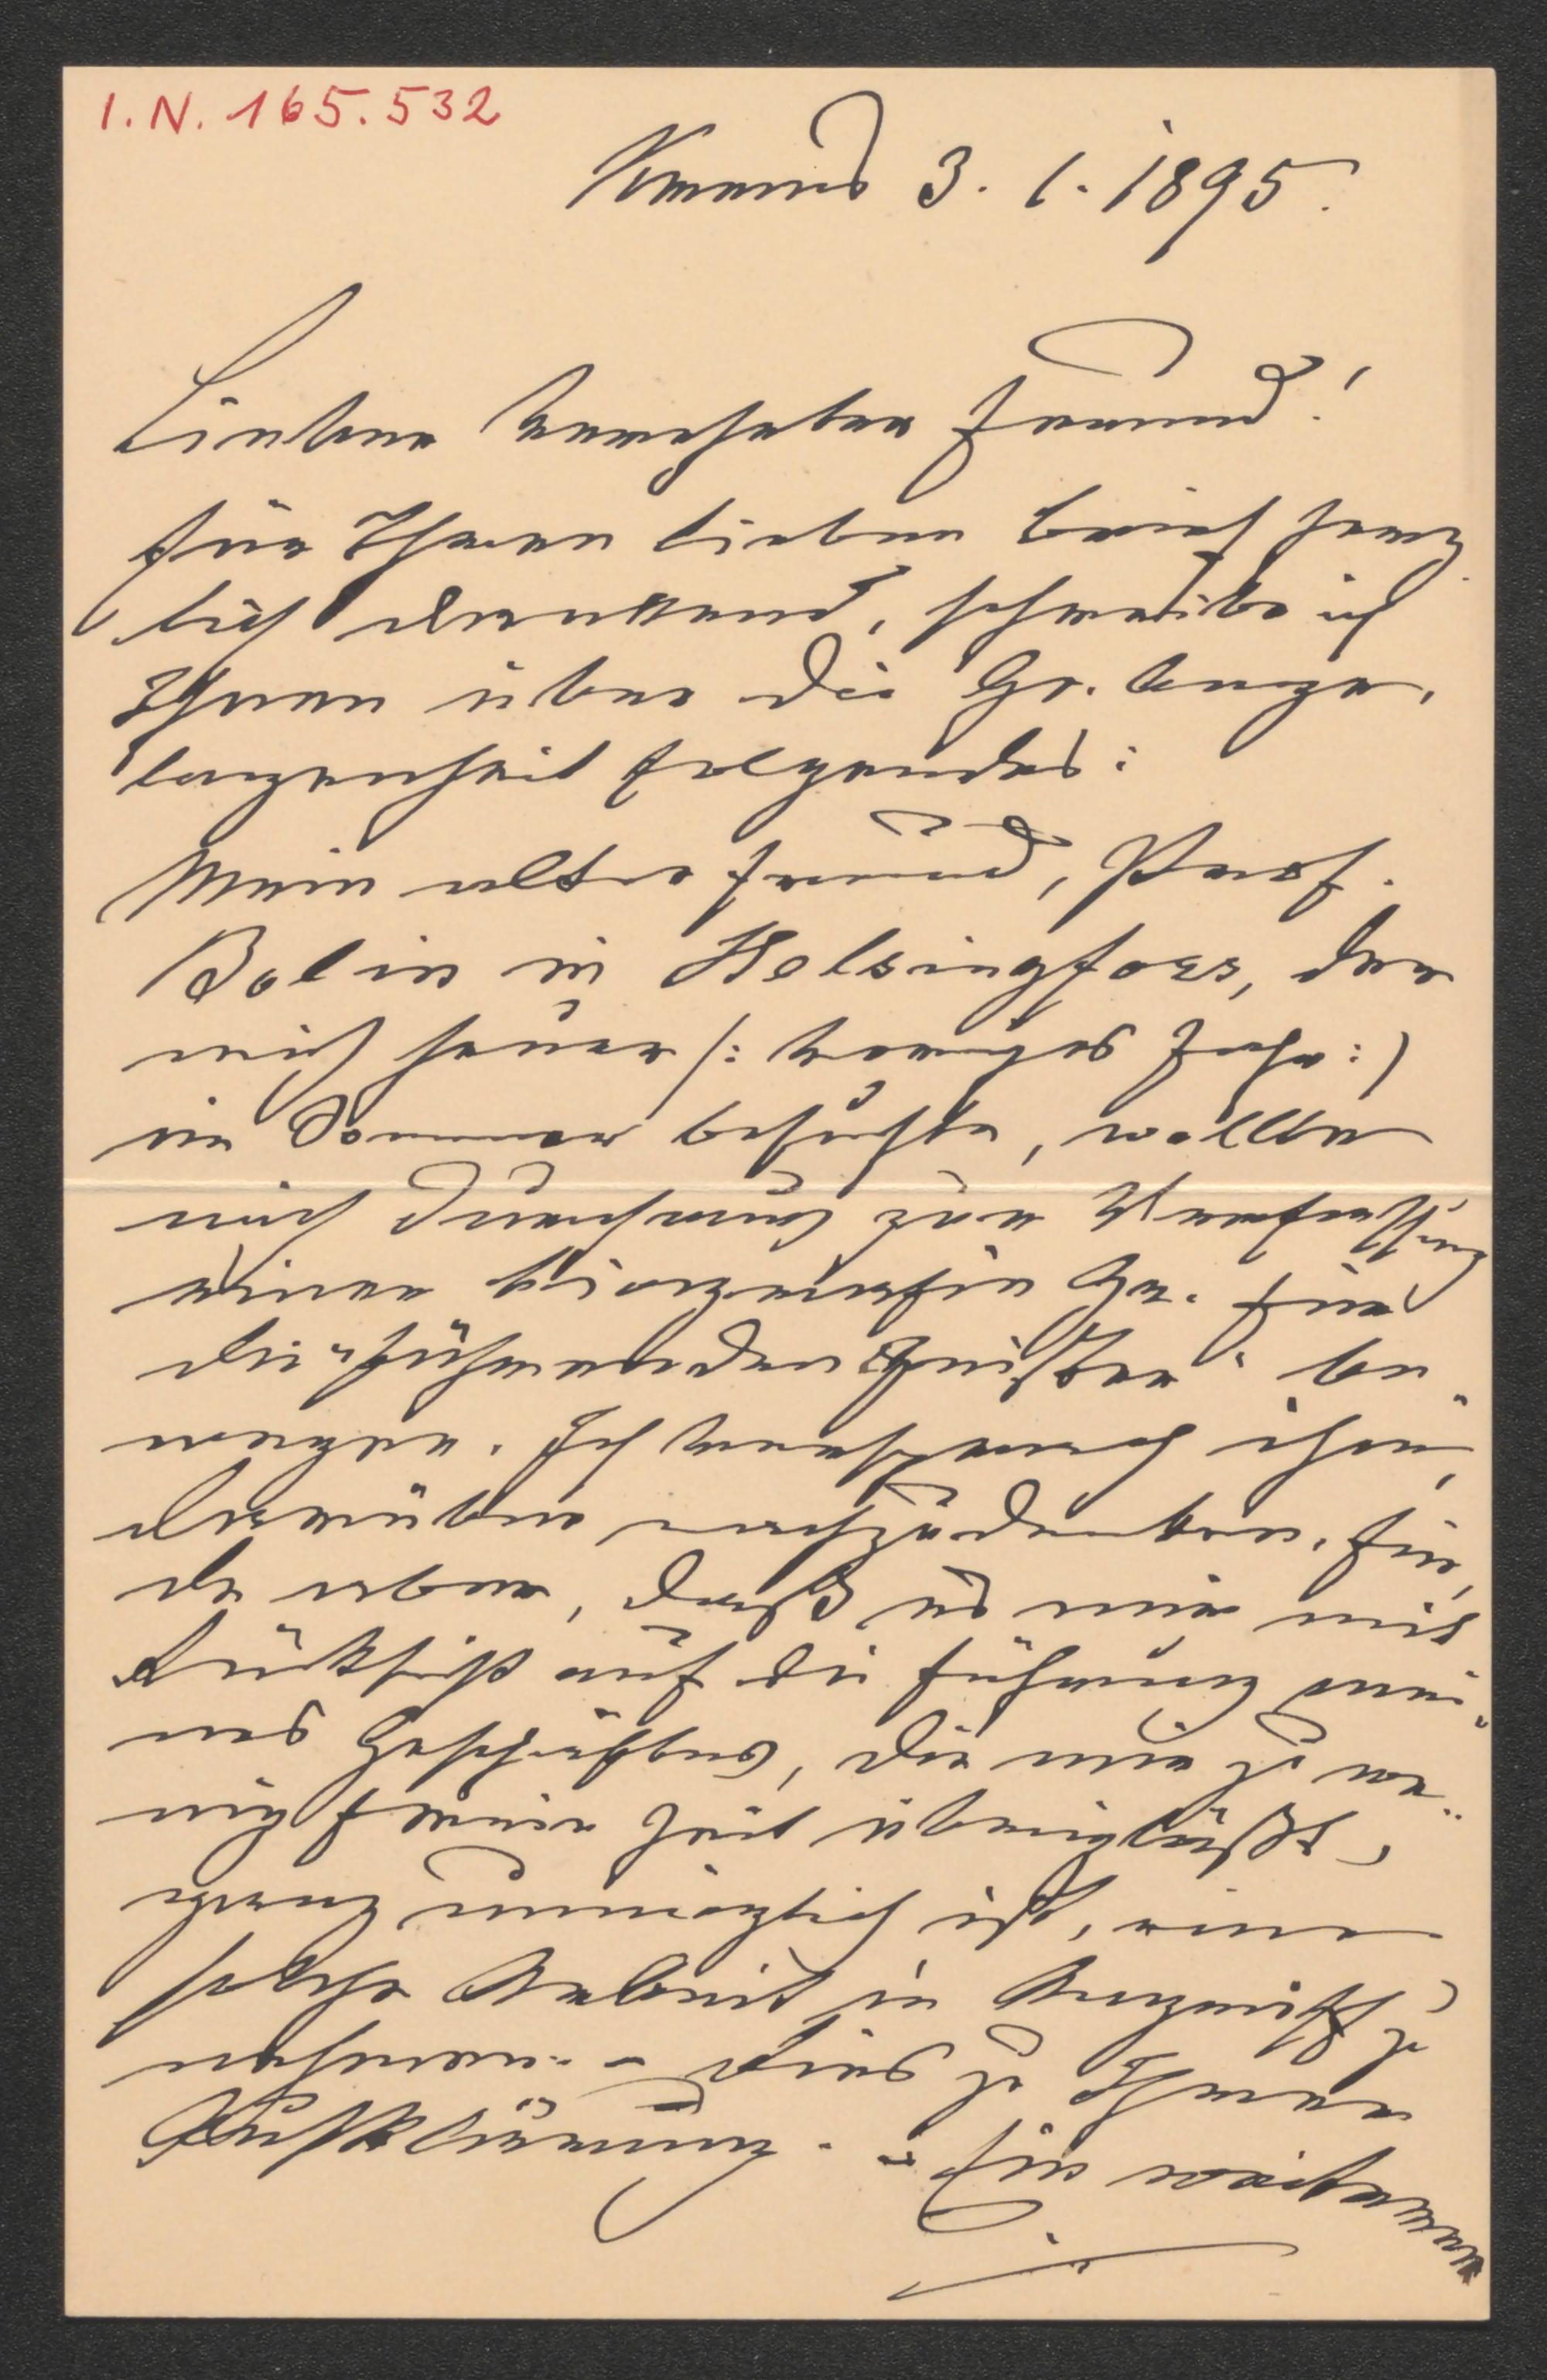 I. N. 165.532
3. 1. 1895.
Lieber verehrter Freund!
Für Ihren lieben Brief herz
lich dankend, schreibe ich
Ihnen über die Gr. Ange-
legenheit folgendes:
Mein alter Freund, Prof.
Bolin in Helsingfors, der
mich heuer /: voriges Jahr :/
im Sommer besuchte, wollte
mich durchaus zur Verfassung
einer Biografie Gr. für
die „führenden Geister“ be-
wegen. Ich versprach ihm,
darüber nachzudenken, fin-
de aber, daß es mir mit
Rücksicht auf die Führung mei-
nes Geschäftes, die mir so we-
nig freie Zeit übrigläßt,
ganz unmöglich ist, eine
solche Arbeit in Angriff zu
nehmen. – Dies zu Ihrer
Aufklärung. – Ein weiterer